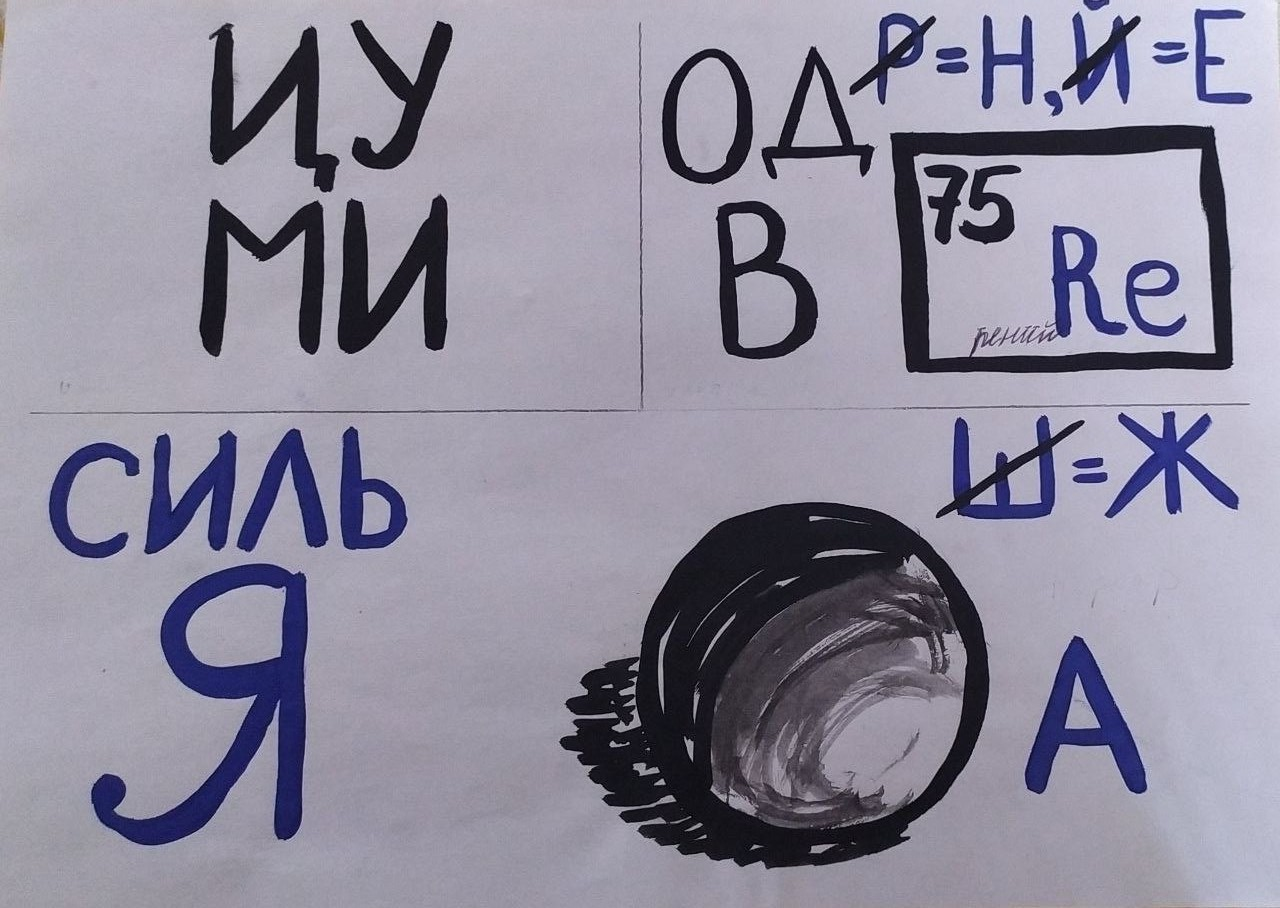 ЦУ
МИ
Р=Н, Й=Е
ОД
В
75
Re
рений
СИЛЬ
Я
Ш=Ж
А